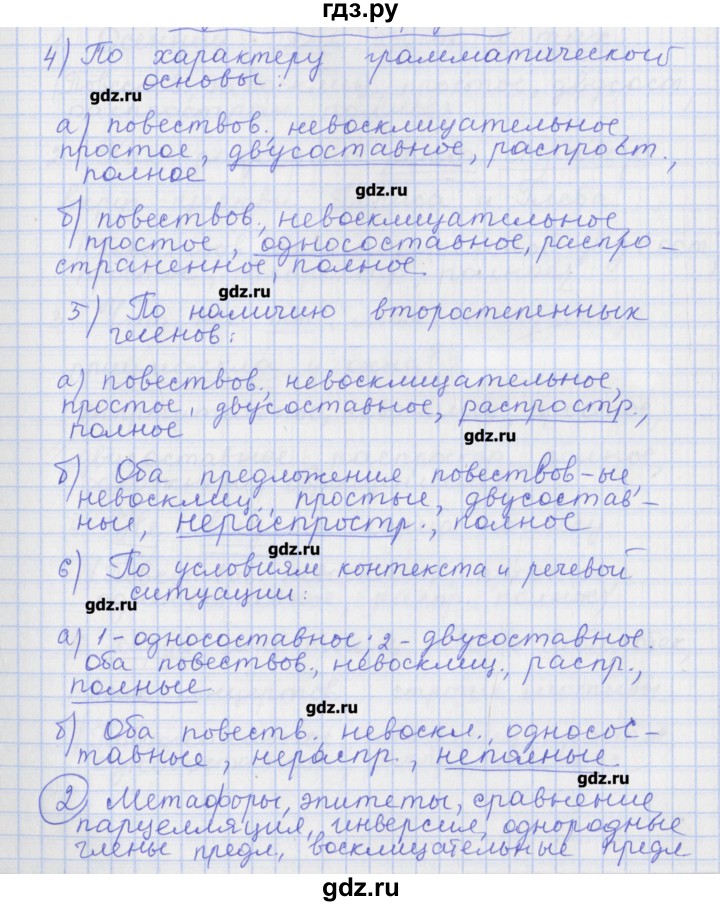 гдз.ру
4) По характеру грамматической
основы:
gdz.ru
а) повествов., невосклицательное,
простое, двусоставное, распрост.,
полное
gdz.ru
б) повествов., невосклицательное,
простое, односоставное, распро-
страненное, полное
gdz.ru
5) По наличию второстепенных
членов:
а) повествов., невосклицательное,
простое, двусоставное, распростр.,
полное
gdz.ru
б) Оба предложения повествов-ые,
невосклиц., простые, двусостав-
ные, нераспростр., полное
gdz.ru
6) По условиям контекста и речевой
ситуации:
gdz.ru
а) 1-односоставное; 2-двусоставное.
Оба повествов., невосклиц., распр.,
полные
gdz.ru
б) Оба повеств. невоскл., односос-
тавные, нераспр., неполные.
gdz.ru
2 Метафоры, эпитеты, сравнение
парцелляция, инверсия, однородные
члены предл, восклицательные предл
gdz.ru